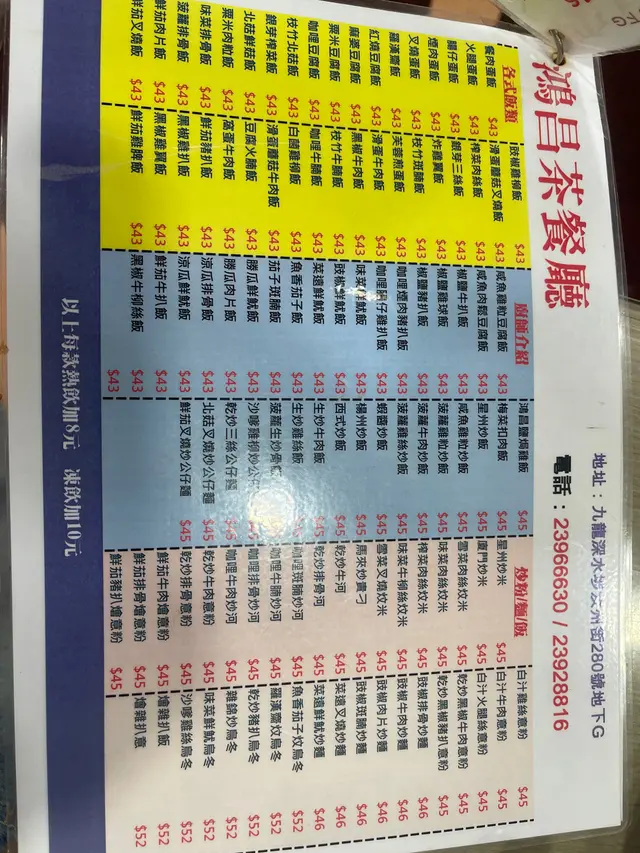 鴻昌茶餐廳
地址：九龍深水埗汝州街280號地下G
電話：23966630 / 23928816
各式飯類
餐肉蛋飯 $43
火腿蛋飯 $43
腸仔蛋飯 $43
煙肉蛋飯 $43
叉燒蛋飯 $43
羅漢齋飯 $43
紅燒豆腐飯 $43
麻婆豆腐飯 $43
粟米豆腐飯 $43
咖喱豆腐飯 $43
枝竹北菇飯 $43
銀芽榨菜飯 $43
北菇鮮菇飯 $43
粟米肉粒飯 $43
味菜排骨飯 $43
菠蘿排骨飯 $43
鮮茄肉片飯 $43
鮮茄叉燒飯 $43
豉椒雞柳飯 $43
滑蛋蘑菇叉燒飯 $43
榨菜肉絲飯 $43
銀芽三絲飯 $43
炸雞翼飯 $43
枝竹斑腩飯 $43
芙蓉蛋飯 $43
滑蛋牛飯 $43
黑椒牛肉飯 $43
枝竹牛腩飯 $43
咖喱牛腩飯 $43
白菌雞柳飯 $43
滑蛋蘑菇牛肉飯 $43
豆腐火腩飯 $43
窩蛋牛肉飯 $43
鮮茄豬扒飯 $43
黑椒雞扒飯 $43
黑椒雞翼飯 $43
鮮茄雞脾飯 $43
廚師介紹
咸魚雞粒豆腐飯 $43
咸魚肉鬆豆腐飯 $43
椒鹽牛扒飯 $43
椒鹽雞球飯 $43
椒鹽豬扒飯 $43
咖喱煙肉豬扒飯 $43
咖喱腸仔雞扒飯 $43
味菜鮮魷飯 $43
豉椒鮮魷飯 $43
菜遠鮮魷飯 $43
魚香茄子飯 $43
茄子斑腩飯 $43
勝瓜鮮魷飯 $43
勝瓜肉片飯 $43
涼瓜排骨飯 $43
涼瓜鮮魷飯 $43
鮮茄牛扒飯 $43
黑椒牛柳絲飯 $43
鴻昌鹽焗雞飯 $45
梅菜扣肉飯 $45
星州炒飯 $45
咸魚雞粒炒飯 $45
菠蘿雞粒炒飯 $45
菠蘿牛肉炒飯 $45
菠蘿雞絲炒飯 $45
蝦醬炒飯 $45
揚州炒飯 $45
西式炒飯 $45
生炒牛肉飯 $45
生炒雞絲飯 $45
菠蘿生炒骨飯
沙嗲雞柳炒公仔
乾炒三絲公仔麵 $45
北菇叉燒炒公仔麵 $45
鮮茄叉燒炒公仔麵 $45
炒粉/麵/飯
星州炒米 $45
廈門炒米 $45
雪菜肉絲炆米 $45
味菜肉絲炆米 $45
榨菜肉絲炆米 $45
味菜牛柳絲炆米 $45
雪菜叉燒炆米 $45
馬來炒貴刁 $45
乾炒牛河 $45
乾炒排骨河 $45
咖喱斑腩炒河 $45
咖喱牛腩炒河 $45
咖喱排骨炒河 $45
咖喱牛肉炒河 $45
乾炒牛肉意粉 $45
乾炒排骨意粉 $45
鮮茄牛肉燴意粉 $45
鮮茄排骨燴意粉 $45
鮮茄豬扒燴意粉 $45
白汁雞絲意粉 $45
白汁牛肉意粉 $45
白汁火腿絲意粉 $45
乾炒黑椒牛肉意粉 $45
乾炒黑椒豬扒意粉 $45
豉椒排骨炒麵 $46
豉椒牛肉炒麵 $46
豉椒肉片炒麵 $46
豉椒斑腩炒麵 $46
菜遠叉燒炒麵 $46
菜遠鮮魷炒麵 $46
魚香茄子炆烏冬 $52
羅漢齋炆烏冬 $52
乾炒豬扒烏冬 $52
雜錦炒烏冬 $52
味菜鮮魷烏冬 $52
沙嗲雞絲烏冬 $52
燴雜扒飯 $52
燴雜扒意 $52
以上每款熱飲加8元 凍飲加10元